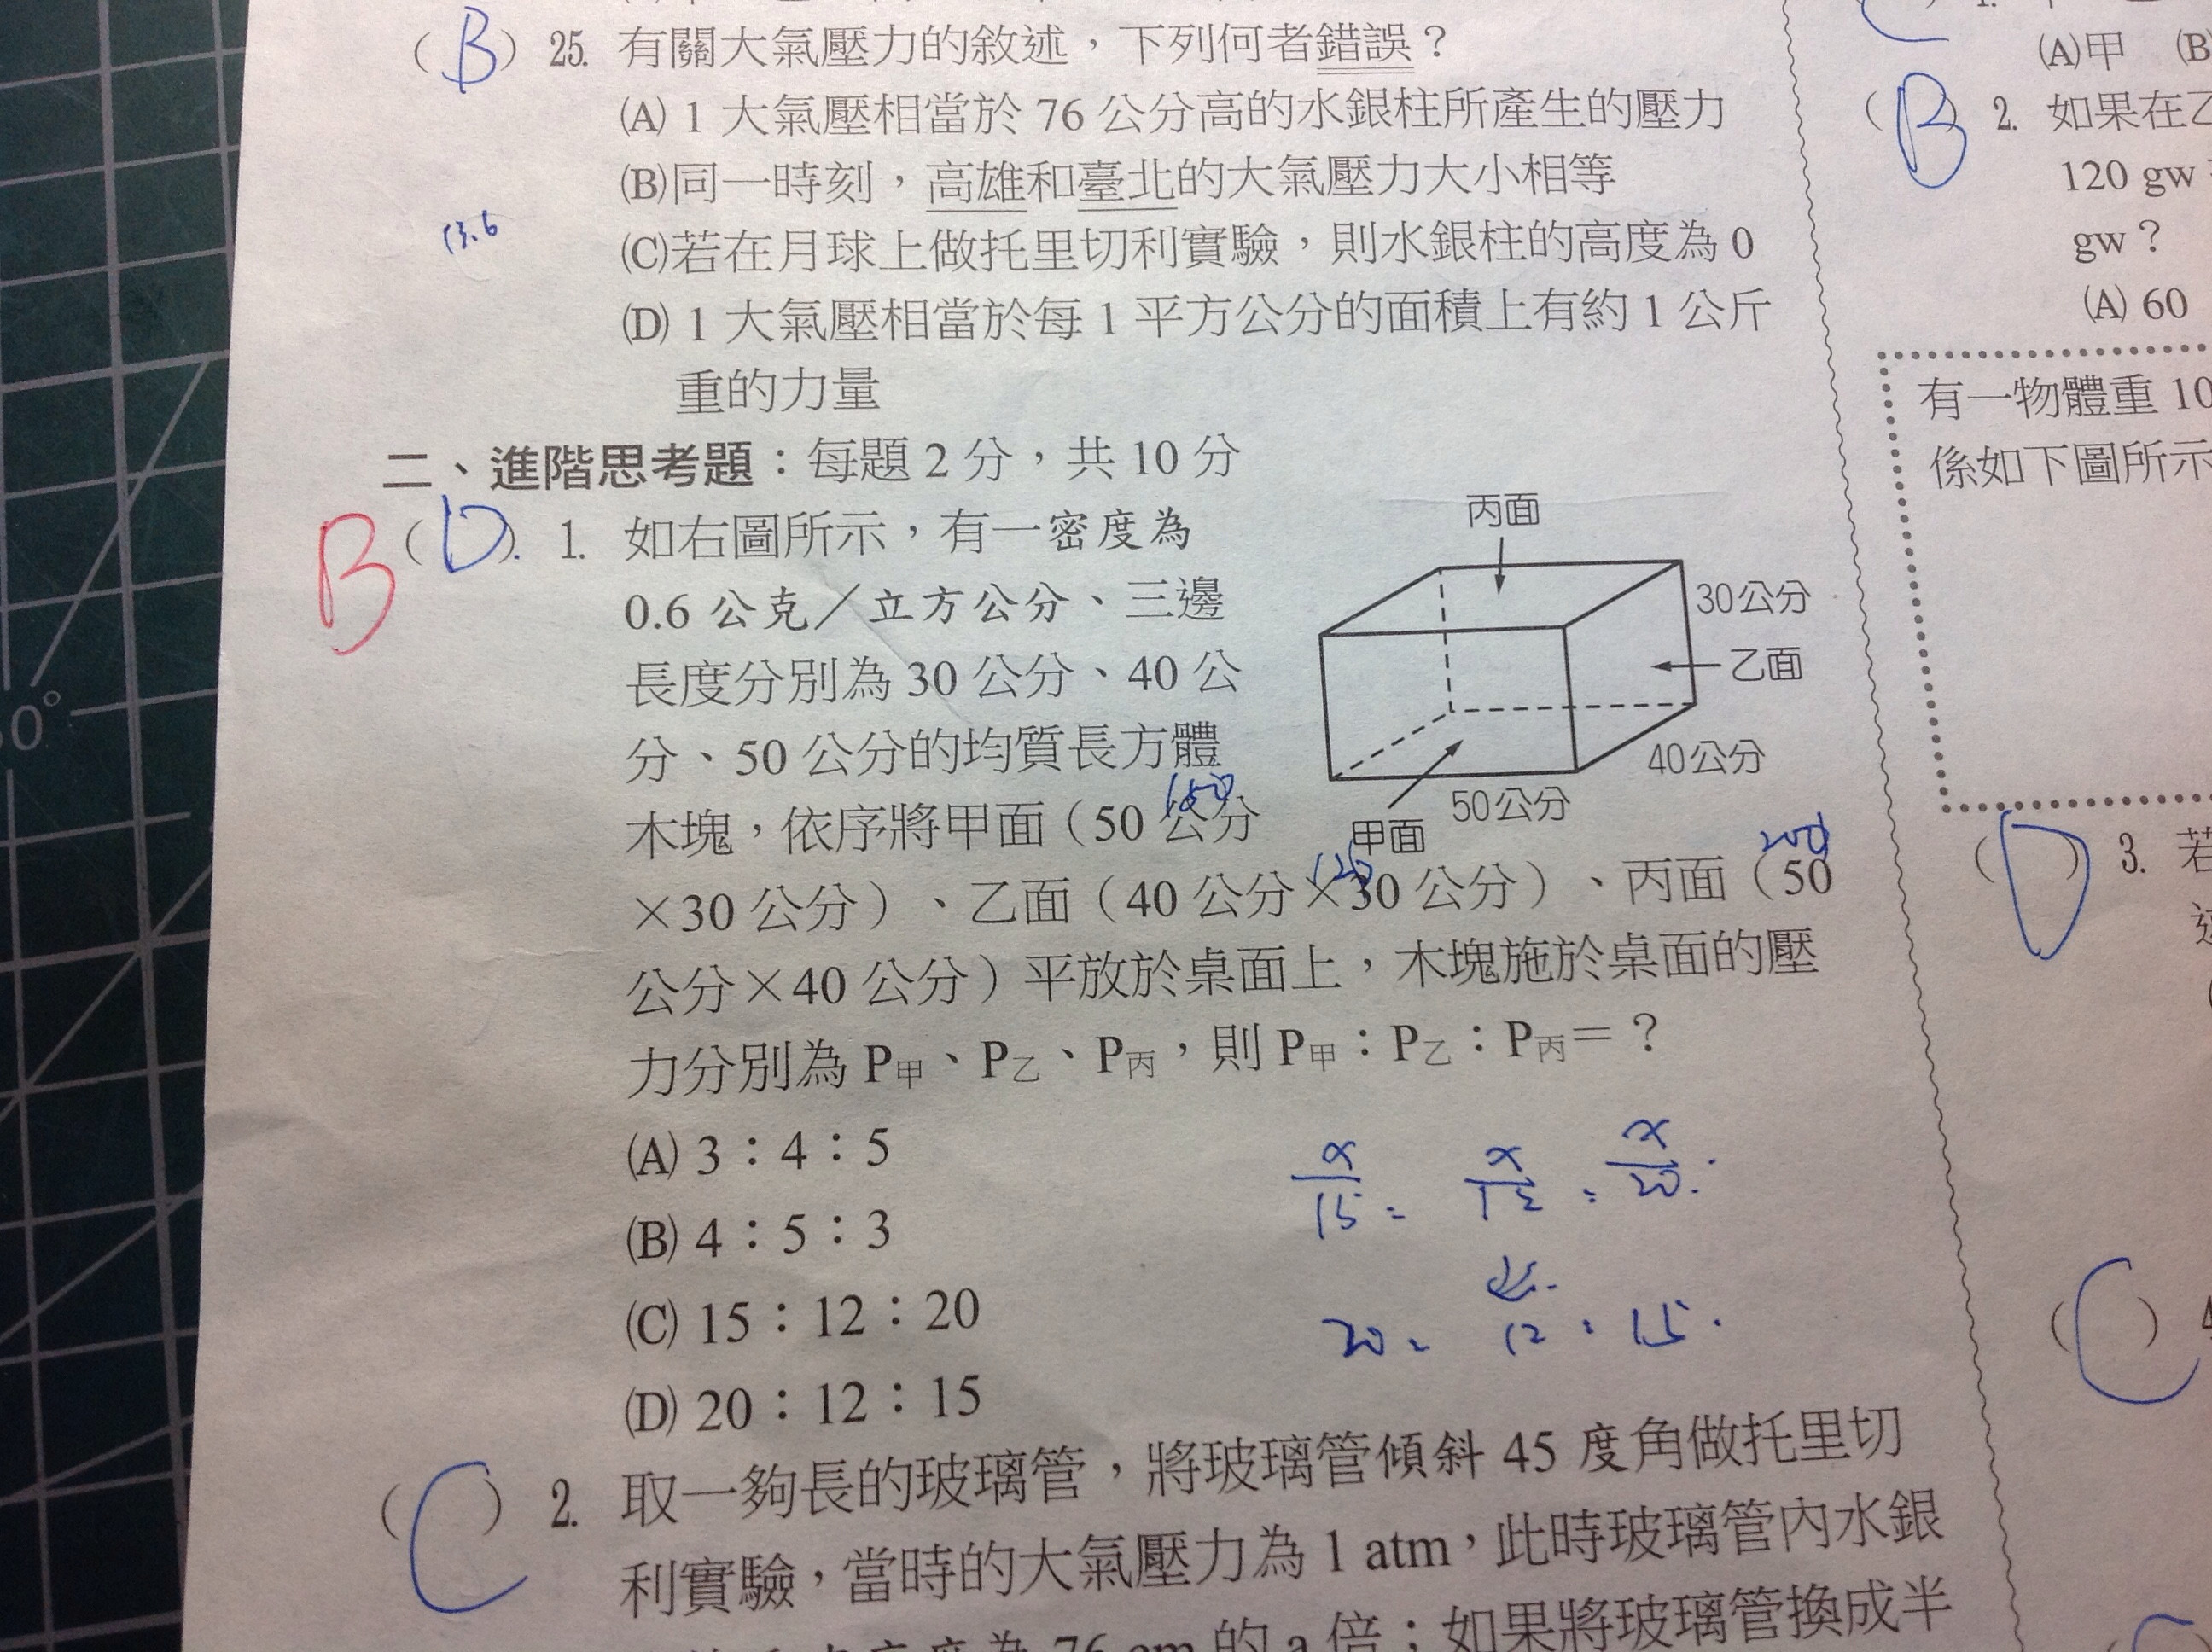 (B) 25. 有關大氣壓力的敘述，下列何者錯誤？
(A) 1 大氣壓相當於 76 公分高的水銀柱所產生的壓力
(B)同一時刻，高雄和臺北的大氣壓力大小相等
13.6
(C)若在月球上做托里切利實驗，則水銀柱的高度為 0
(D) 1 大氣壓相當於每 1 平方公分的面積上有約 1 公斤
重的力量
二、進階思考題：每題 2 分，共 10 分
B (D) 1. 如右圖所示，有一密度為
0.6 公克／立方公分、三邊
長度分別為 30 公分、40 公
分、50 公分的均質長方體
木塊，依序將甲面（50 公分
×30 公分）、乙面（40 公分×30 公分）、丙面（50
公分×40 公分）平放於桌面上，木塊施於桌面的壓
力分別為 P甲、P乙、P丙，則 P甲：P乙：P丙＝？
丙面
30公分
乙面
40公分
50公分
甲面
(A) 3：4：5
(B) 4：5：3
(C) 15：12：20
(D) 20：12：15
x/15 : x/12 : x/20
20 : 12 : 15
(C) 2. 取一夠長的玻璃管，將玻璃管傾斜 45 度角做托里切
利實驗，當時的大氣壓力為 1 atm，此時玻璃管內水銀
76 cm 的 a 倍；如果將玻璃管換成半
(A)甲 (B)
(B) 2. 如果在乙
120 gw
gw？
(A) 60
有一物體重 10
係如下圖所示
(D) 3. 若
(C) 4